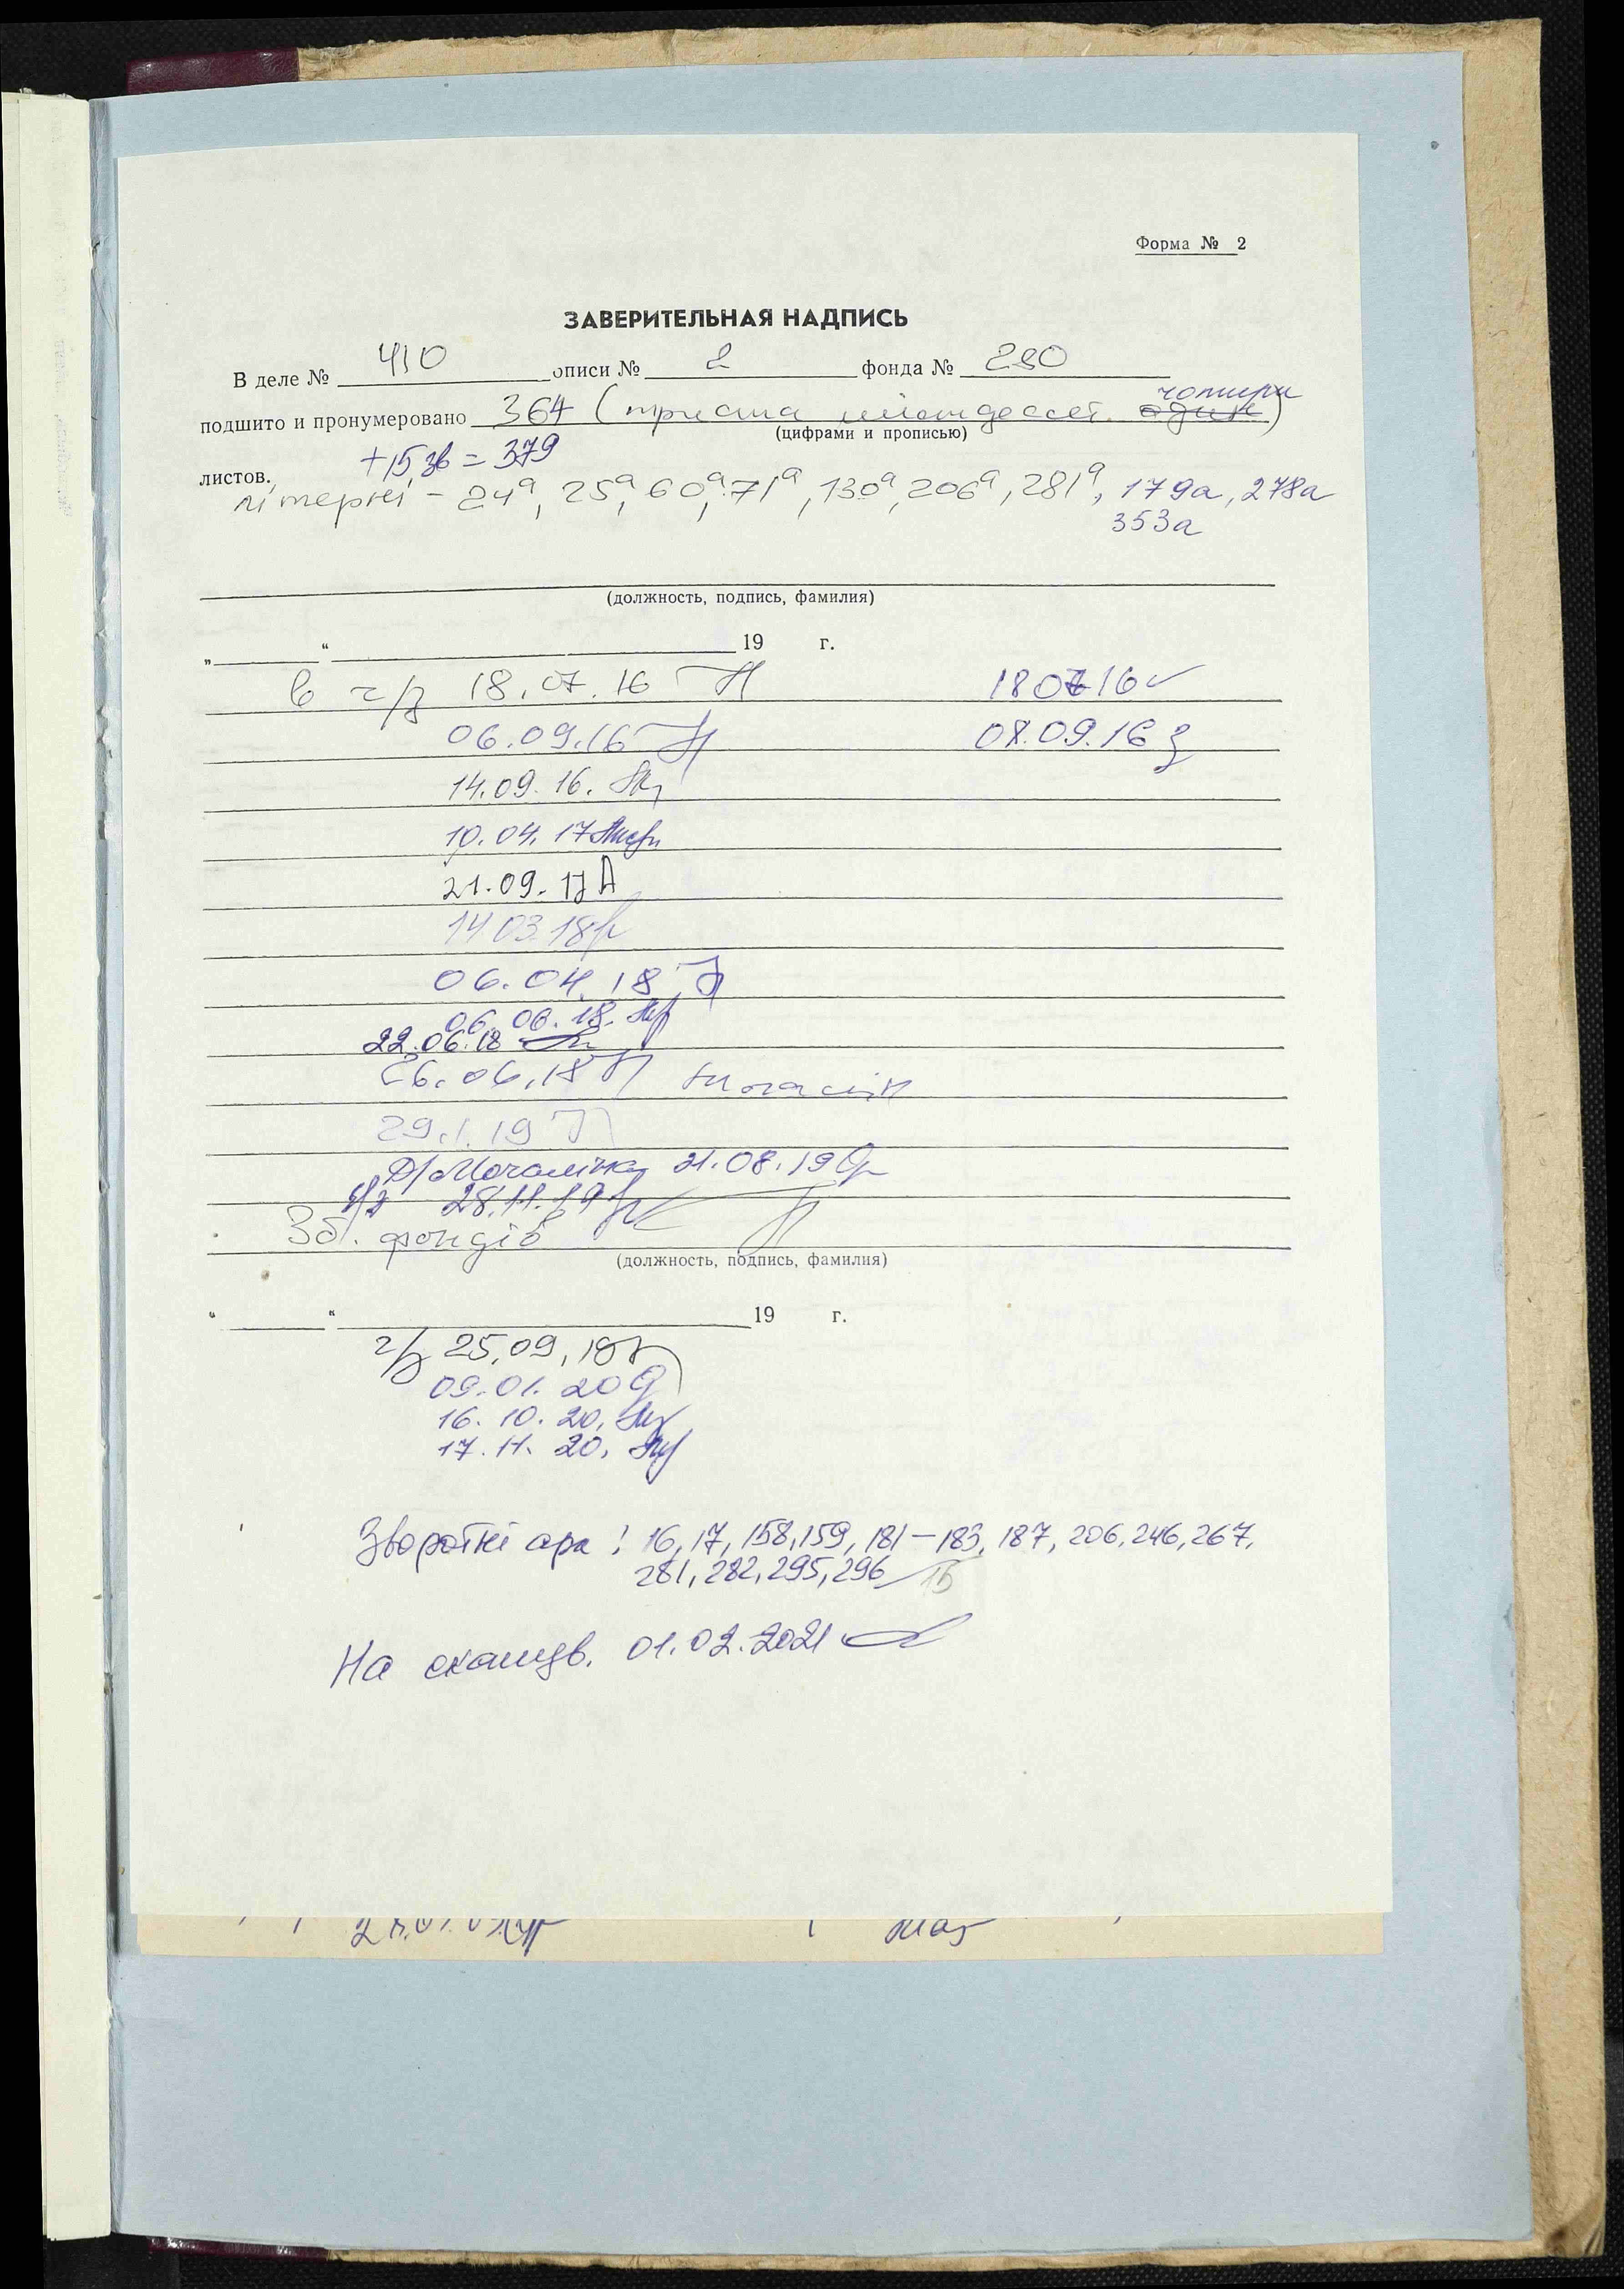 Форма № 2
ЗАВЕРИТЕЛЬНАЯ НАДПИСЬ
В деле № 410 описи № 2 фонда № 280
чотири
подшито и пронумеровано 364 (триста шістдесят один)
(цифрами и прописью)
листов. +15 зв = 379
літерні - 24а, 25а, 60а, 71а, 130а, 206а, 281а, 179а, 278а
353а
(должность, подпись, фамилия)
„ “ 19 г.
в ч/з 18.07.16 180716
06.09.16 08.09.16
14.09.16.
10.04.17
21.09.17
14 03 18
06.04.18
06.06.18.
22.06.18
26.06.18
29.1.19
21.08.19
ч/з 28.11.19
Зб. фондів
(должность, подпись, фамилия)
“ “ 19 г.
ч/з 25.09.19
09.01.20
16.10.20.
17.11.20.
Зворотні арк: 16, 17, 158, 159, 181-183, 187, 206, 246, 267,
281, 282, 295, 296 15
На сканув. 01.02.2021